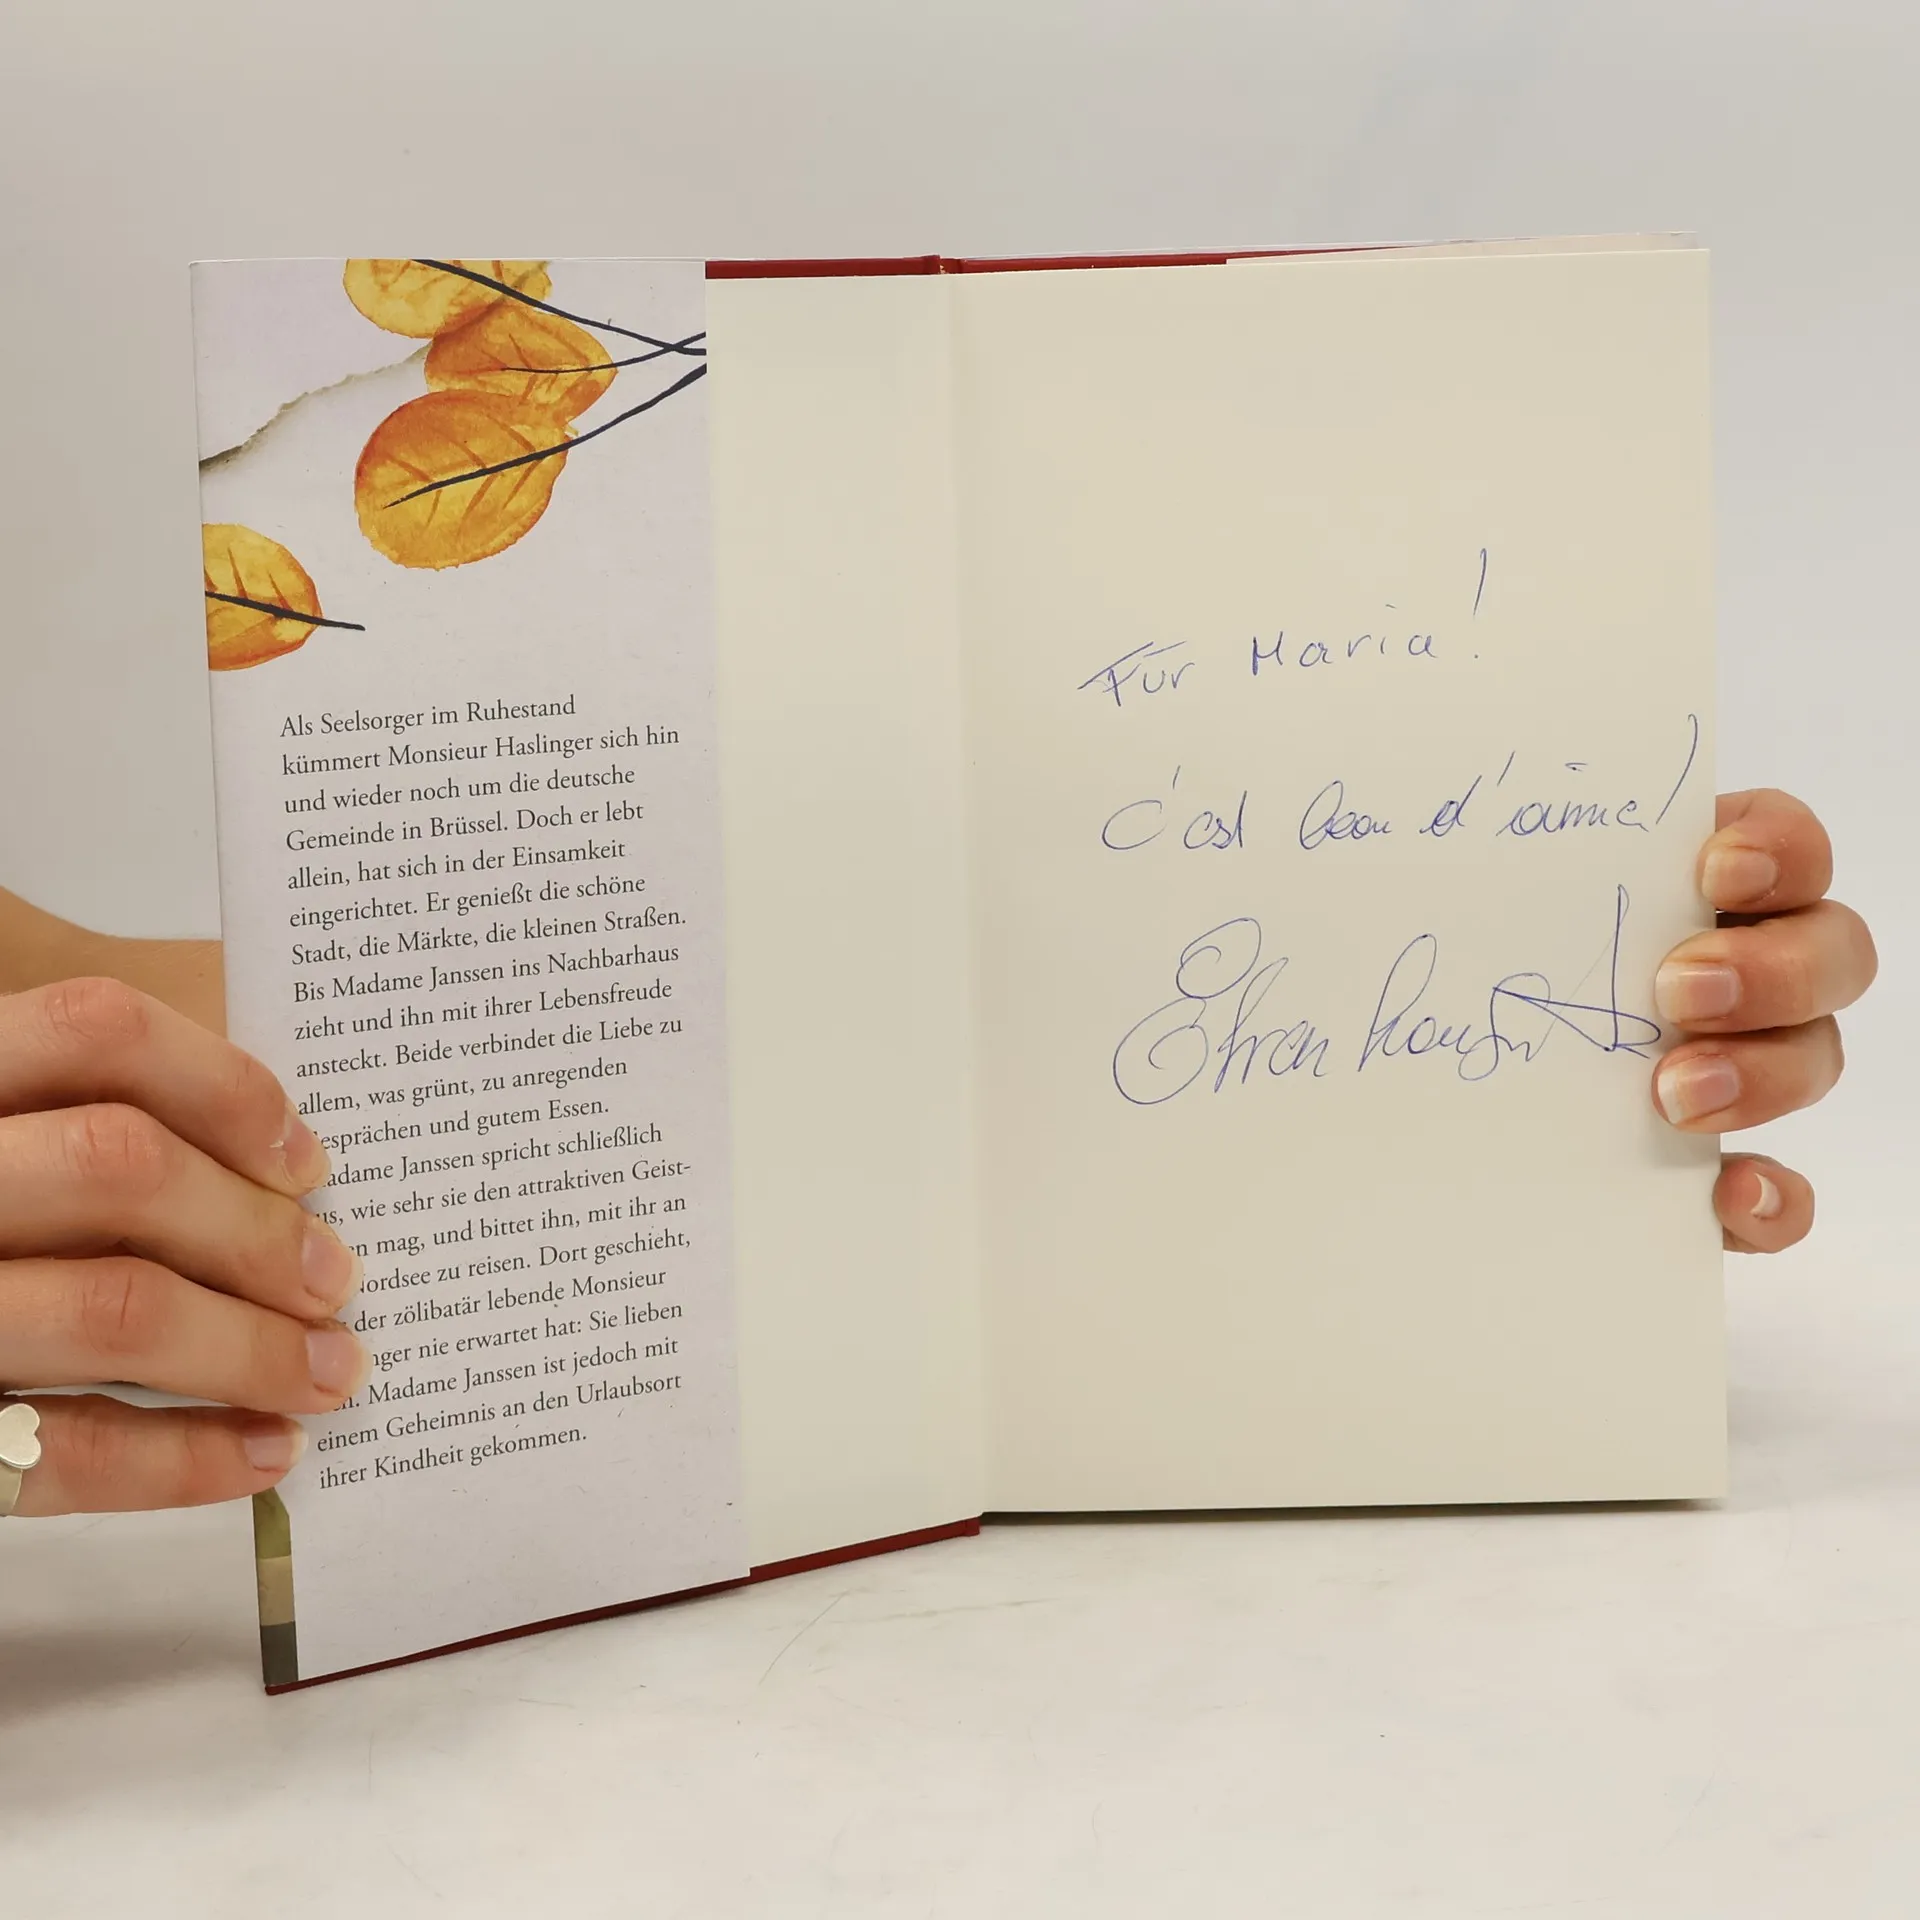 Als Seelsorger im Ruhestand
kümmert Monsieur Haslinger sich hin
und wieder noch um die deutsche
Gemeinde in Brüssel. Doch er lebt
allein, hat sich in der Einsamkeit
eingerichtet. Er genießt die schöne
Stadt, die Märkte, die kleinen Straßen.
Bis Madame Janssen ins Nachbarhaus
zieht und ihn mit ihrer Lebensfreude
ansteckt. Beide verbindet die Liebe zu
allem, was grünt, zu anregenden
esprächen und gutem Essen.
adame Janssen spricht schließlich
us, wie sehr sie den attraktiven Geist-
en mag, und bittet ihn, mit ihr an
Nordsee zu reisen. Dort geschieht,
der zölibatär lebende Monsieur
nger nie erwartet hat: Sie lieben
Madame Janssen ist jedoch mit
einem Geheimnis an den Urlaubsort
ihrer Kindheit gekommen.
Für Maria!
C'est beau d'aimer!